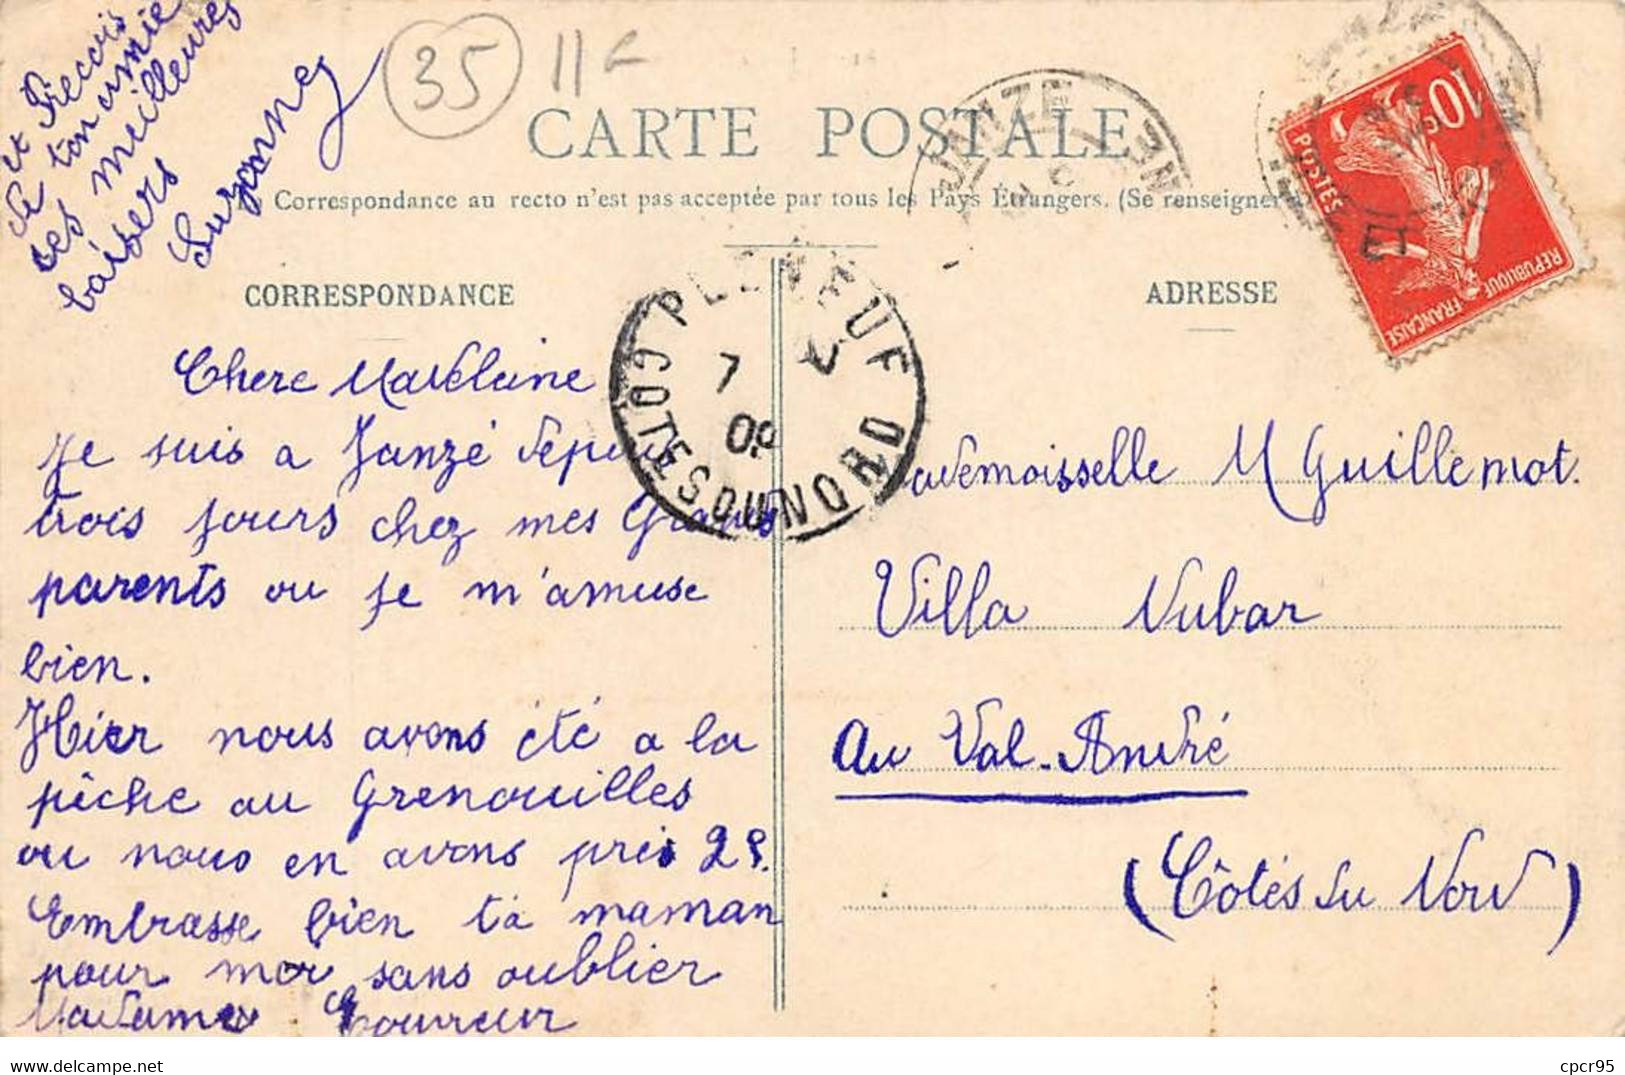 et Reçois
de ton amie
ses meilleures
baisers
Suzanne
35
11 F
CARTE POSTALE
Correspondance au recto n'est pas acceptée par tous les Pays Étrangers. (Se renseigner a
CORRESPONDANCE
ADRESSE
JANZE
10c
POSTES
REPUBLIQUE FRANÇAISE
PLENEUF
7
09
COTES DU NORD
Chere Madeleine
Je suis a Janzé depuis
trois jours chez mes Grands
parents ou je m'amuse
bien.
Hier nous avons été a la
pêche au Grenouilles
ou nous en avons pris 29.
Embrasse bien ta maman
pour moi sans oublier
Madame
Mademoisselle M Guillemot.
Villa Nubar
au Val-André
(Côtés du Nord)
cpcr95